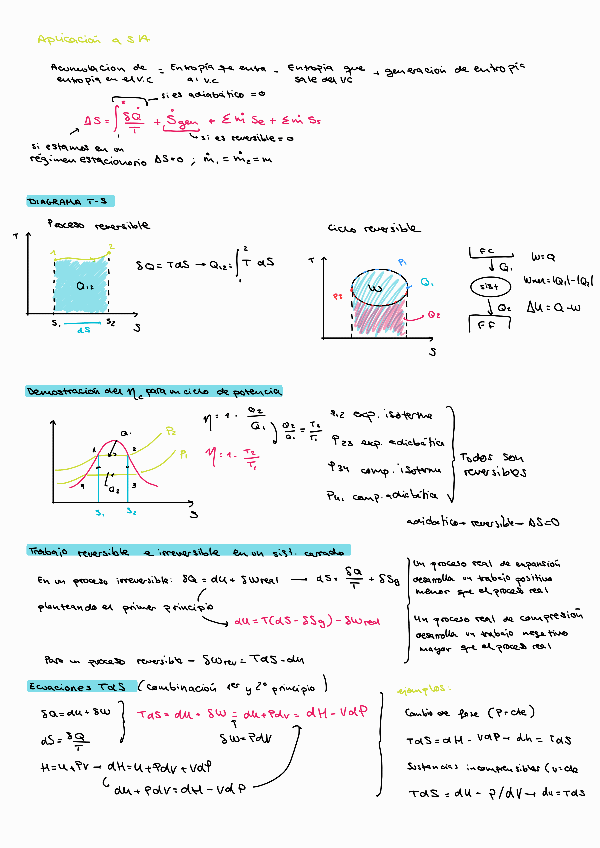 Aplicación a SIA
Acumulación de = Entropía que entra - Entropía que + generación de entropía
entropía en el V.C al V.C sale del VC
si es adiabático = 0
ΔS = ∫ δQ̇/T + Ṡgen + Σṁ Se + Σṁ Ss
si es reversible = 0
si estamos en un
régimen estacionario ΔS=0 ; ṁ₁ = ṁ₂ = m
DIAGRAMA T-S
Proceso reversible
T
1
2
Q₁₂
S₁
S₂
dS
S
δQ = TdS → Q₁₂ = ∫₁² T dS
Ciclo reversible
T
P₁
W
Q₁
Q₂
S
FC
Q₁
sist
Q₂
FF
W=Q
Wnet=|Q₁|-|Q₂|
ΔU = Q-W
Demostración del ηc para un ciclo de potencia
Q₁
P₂
P₁
1
2
4
3
Q₂
S₁
S₂
S
η = 1 - Q₂/Q₁
Q₂/Q₁ = T₂/T₁
η = 1 - T₂/T₁
P12 exp. isoterma
P23 exp. adiabática
P34 comp. isoterma
P41 comp. adiabática
Todos son
reversibles
adiabático + reversible → ΔS=0
Trabajo reversible e irreversible en un sist. cerrado
En un proceso irreversible: δQ = dU + δWreal → dS = δQ/T + δSg
planteando el primer principio
dU = T(dS - δSg) - δWreal
Para un proceso reversible → δWrev = TdS - dU
Un proceso real de expansión
desarrolla un trabajo positivo
menor que el proces real
Un proceso real de compresión
desarrolla un trabajo negativo
mayor que el proces real
Ecuaciones TdS (combinación 1er y 2º principio)
δQ = dU + δW
dS = δQ/T
TdS = dU + δW = dU + PdV = dH - VdP
δW = PdV
H = U + PV → dH = U + PdV + VdP
dU + PdV = dH - VdP
ejemplos:
Cambio de fase (P=cte)
TdS = dH - VdP → dh = TdS
Sustancias incompresibles (v=cte
TdS = dU - P/dV → du = TdS